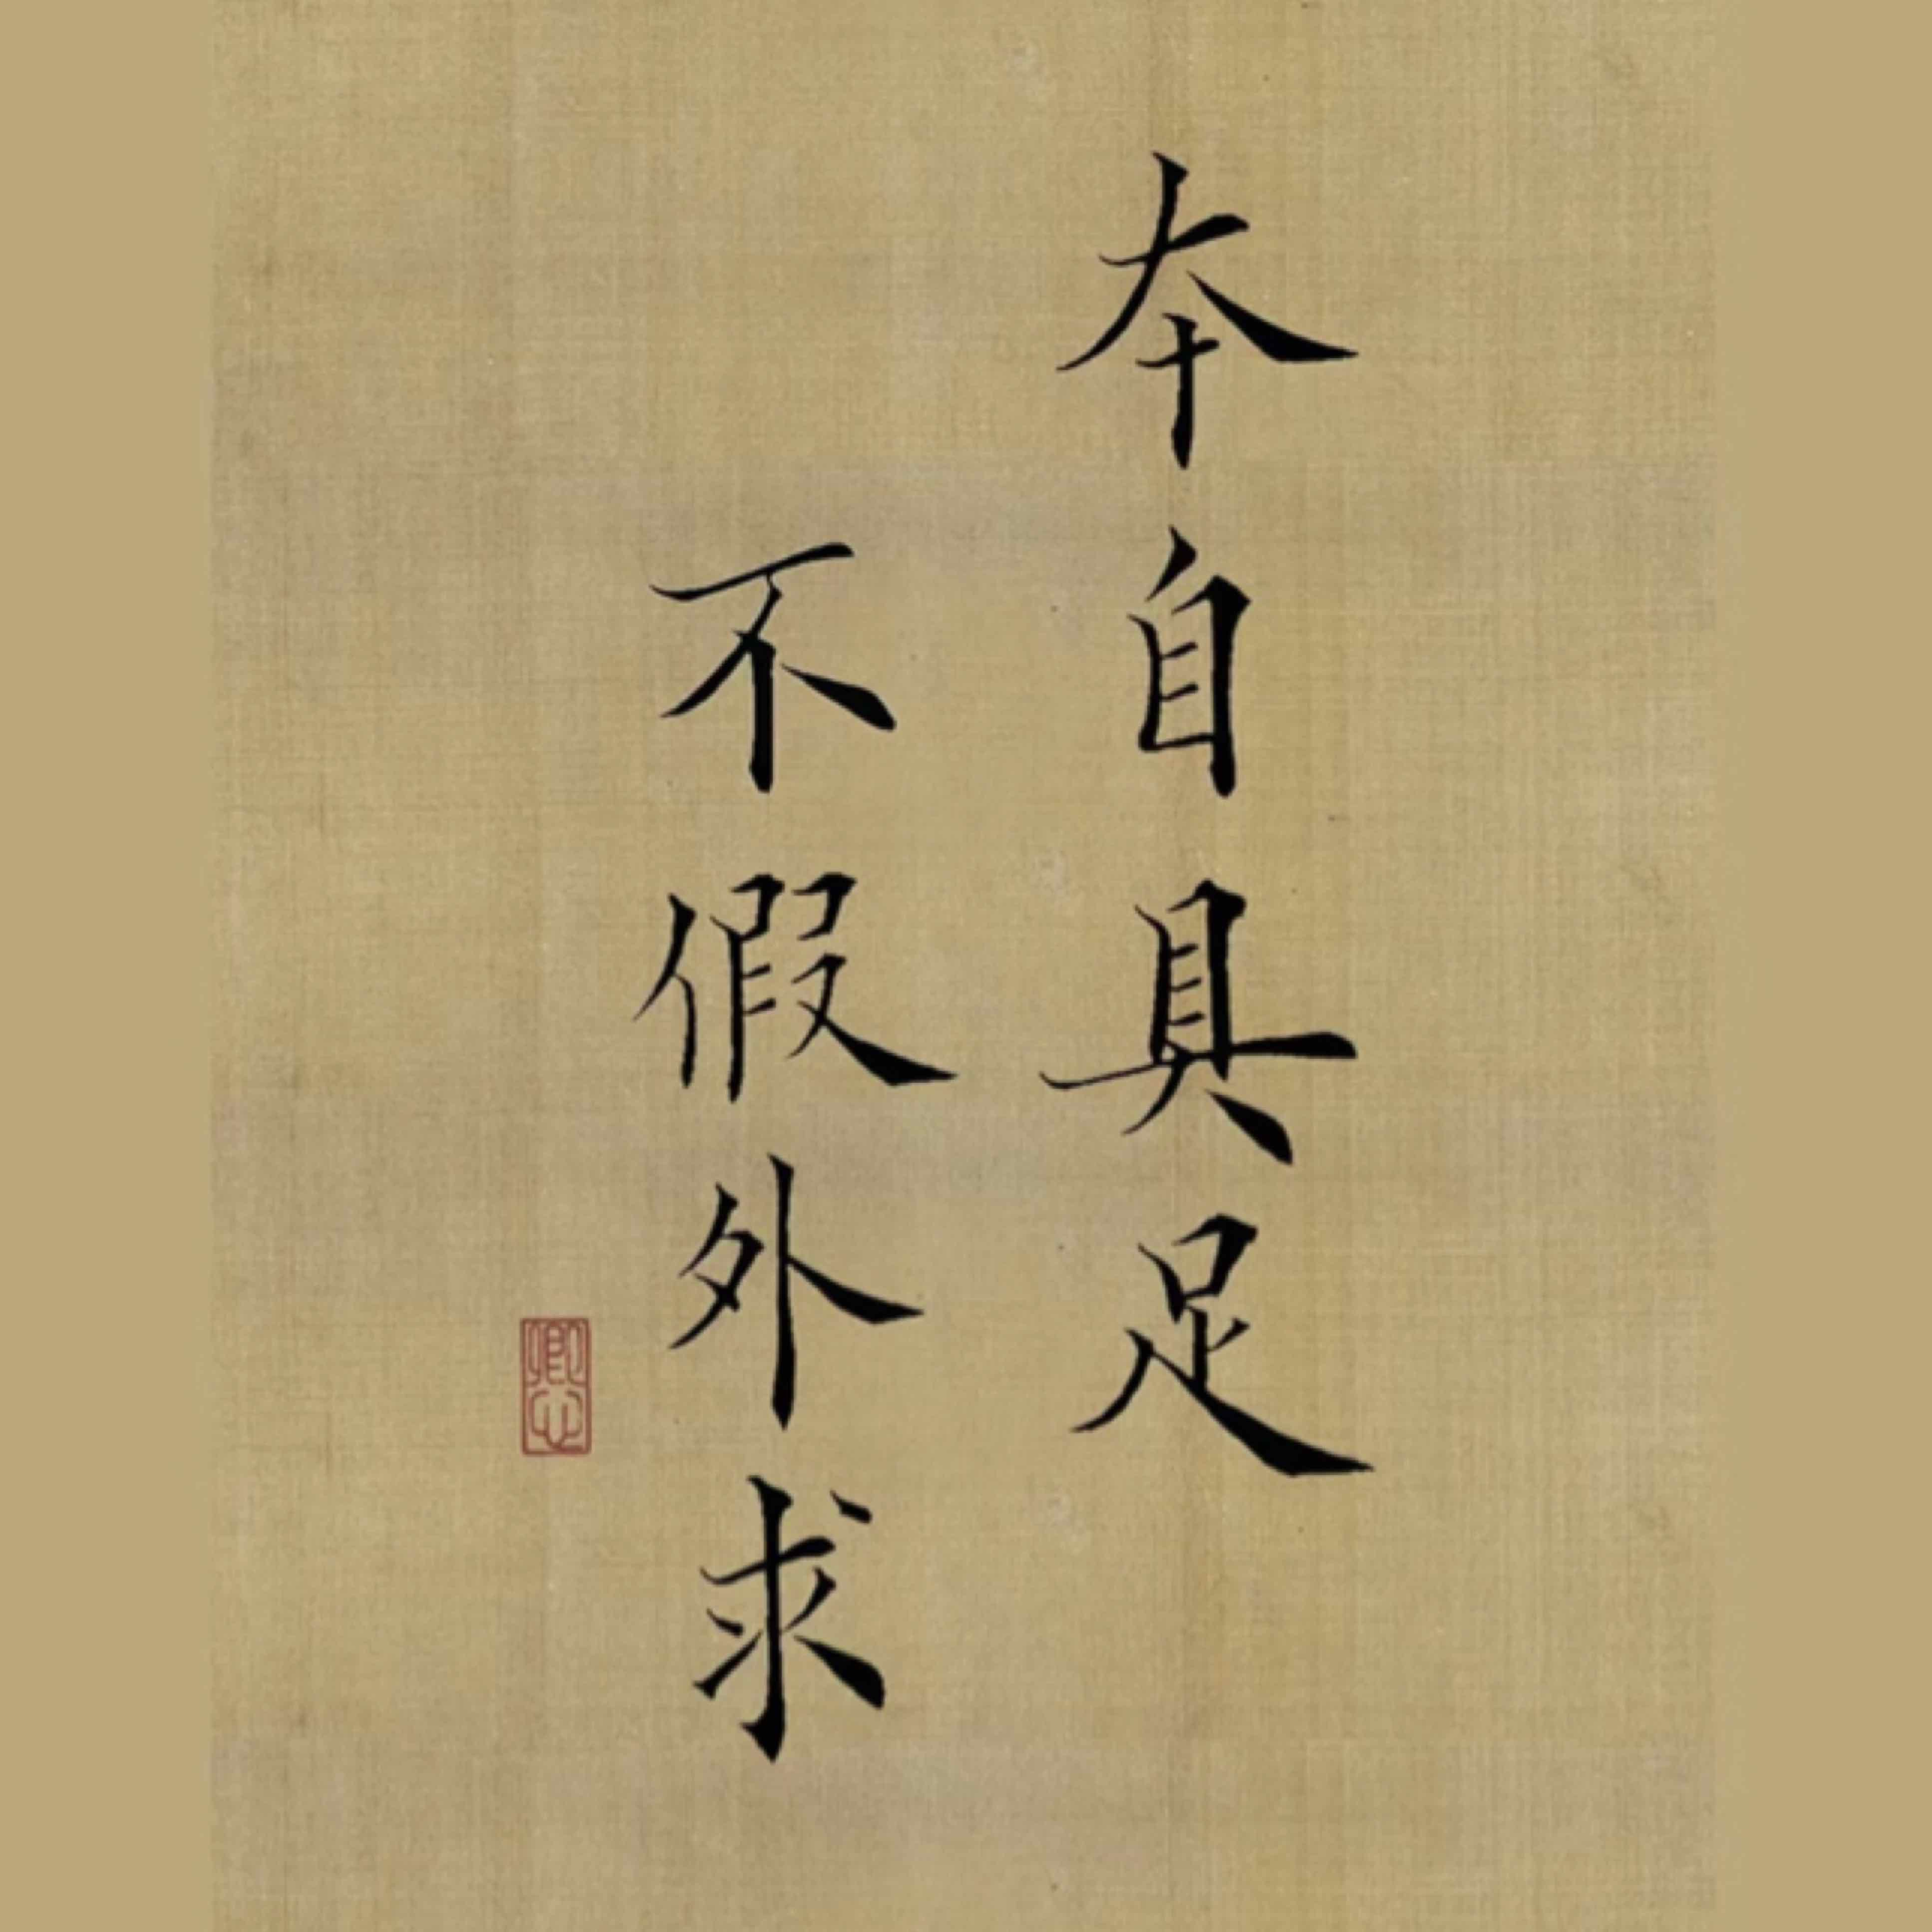 本自具足
不假外求